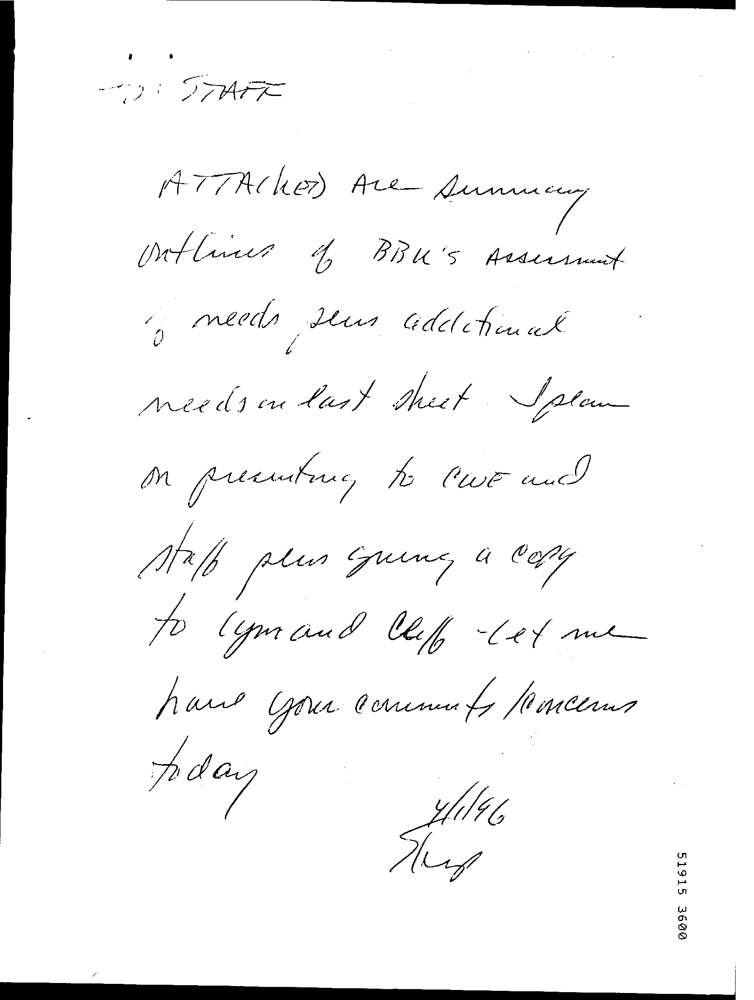 TO: STAFF
ATTACHED Are Summary
outlines of BBK's Assessment
of needs plus additional
needs on last sheet. I plan
on presenting to CWE and
staff plus giving a copy
to Lynn and Cliff - let me
have your comments/concerns
today
4/1/96
51915 3600